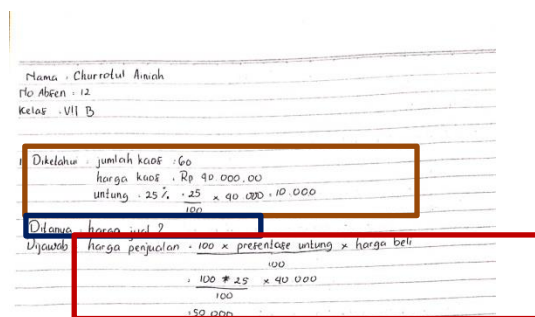 Nama : Churrotul Ainiah
No Absen : 12
Kelas : VII B
1 Diketahui : jumlah kaos : 60
harga kaos : Rp 40.000,00
untung : 25% : 25/100 x 40 000 : 10.000
Ditanya : harga jual ?
Dijawab : harga penjualan : 100 x presentase untung x harga beli
100
: 100 + 25 x 40 000
100
: 50 000